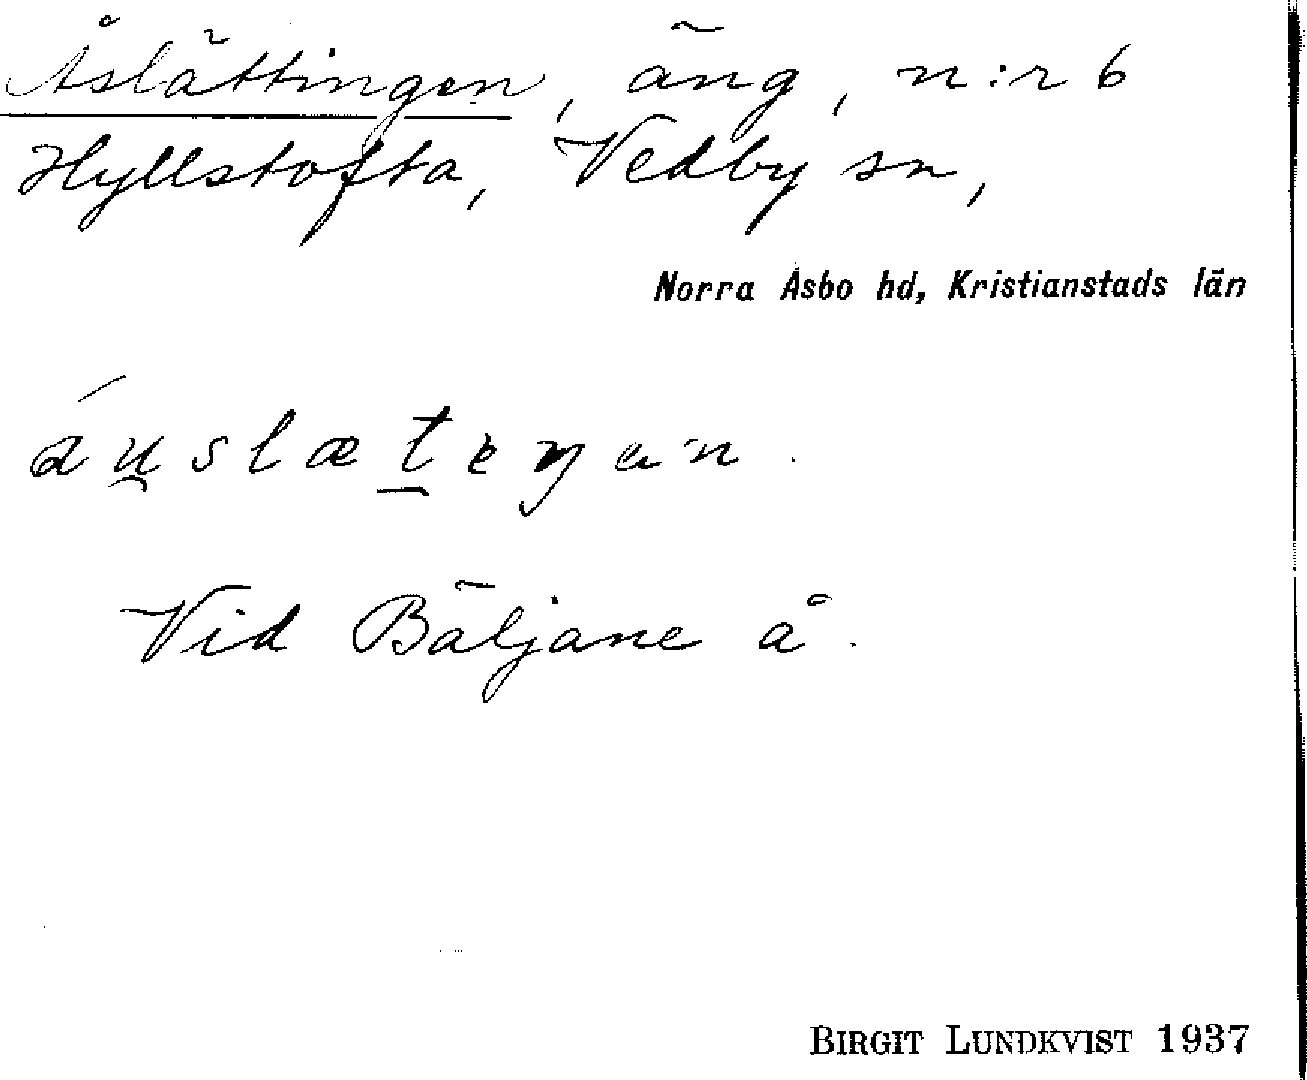 Åslättingen, äng, n:r 6
Hyllstofta, Vedby sn,
Norra Åsbo hd, Kristianstads län
áu̯slæt̲eŋan.
Vid Bäljane å.
BIRGIT LUNDKVIST 1937